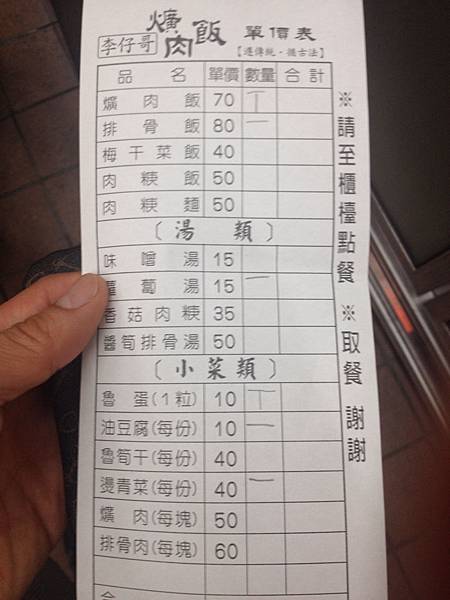 李仔哥 爌肉飯 單價表
【遵傳統‧循古法】
品名 單價 數量 合計
爌肉飯 70 丅
排骨飯 80 一
梅干菜飯 40
肉粳飯 50
肉粳麵 50
〔湯類〕
味噌湯 15
蔔湯 15 一
香菇肉粳 35
醬筍排骨湯 50
〔小菜類〕
魯蛋(1粒) 10 丅
油豆腐(每份) 10 一
魯筍干(每份) 40
燙青菜(每份) 40 一
爌肉(每塊) 50
排骨肉(每塊) 60
※請至櫃檯點餐 ※取餐 謝謝